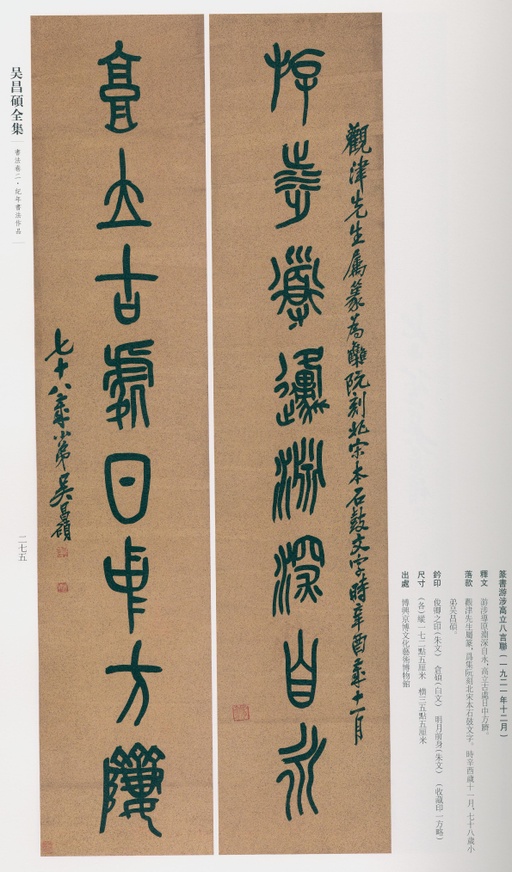 篆書游涉高立八言聯(一九二一年十二月)
釋文 游涉導原淵深自水,高立古處日中方隮。
落款 觀津先生屬篆,爲集阮刻北宋本石鼓文字。時辛酉歲十一月,七十八歲小
弟吳昌碩。
鈐印 俊卿之印(朱文) 倉碩(白文) 明月前身(朱文) (收藏印一方略)
尺寸 (各)縱一七二點五厘米 橫三五點五厘米
出處 博興京博文化藝術博物館
觀津先生屬篆為集阮刻北宋本石鼓文字時辛酉歲十一月
游涉導邍淵深自水
高立古處日中方隮
七十八歲小弟吳昌碩
吴昌碩全集
書法卷二·紀年書法作品
二七五